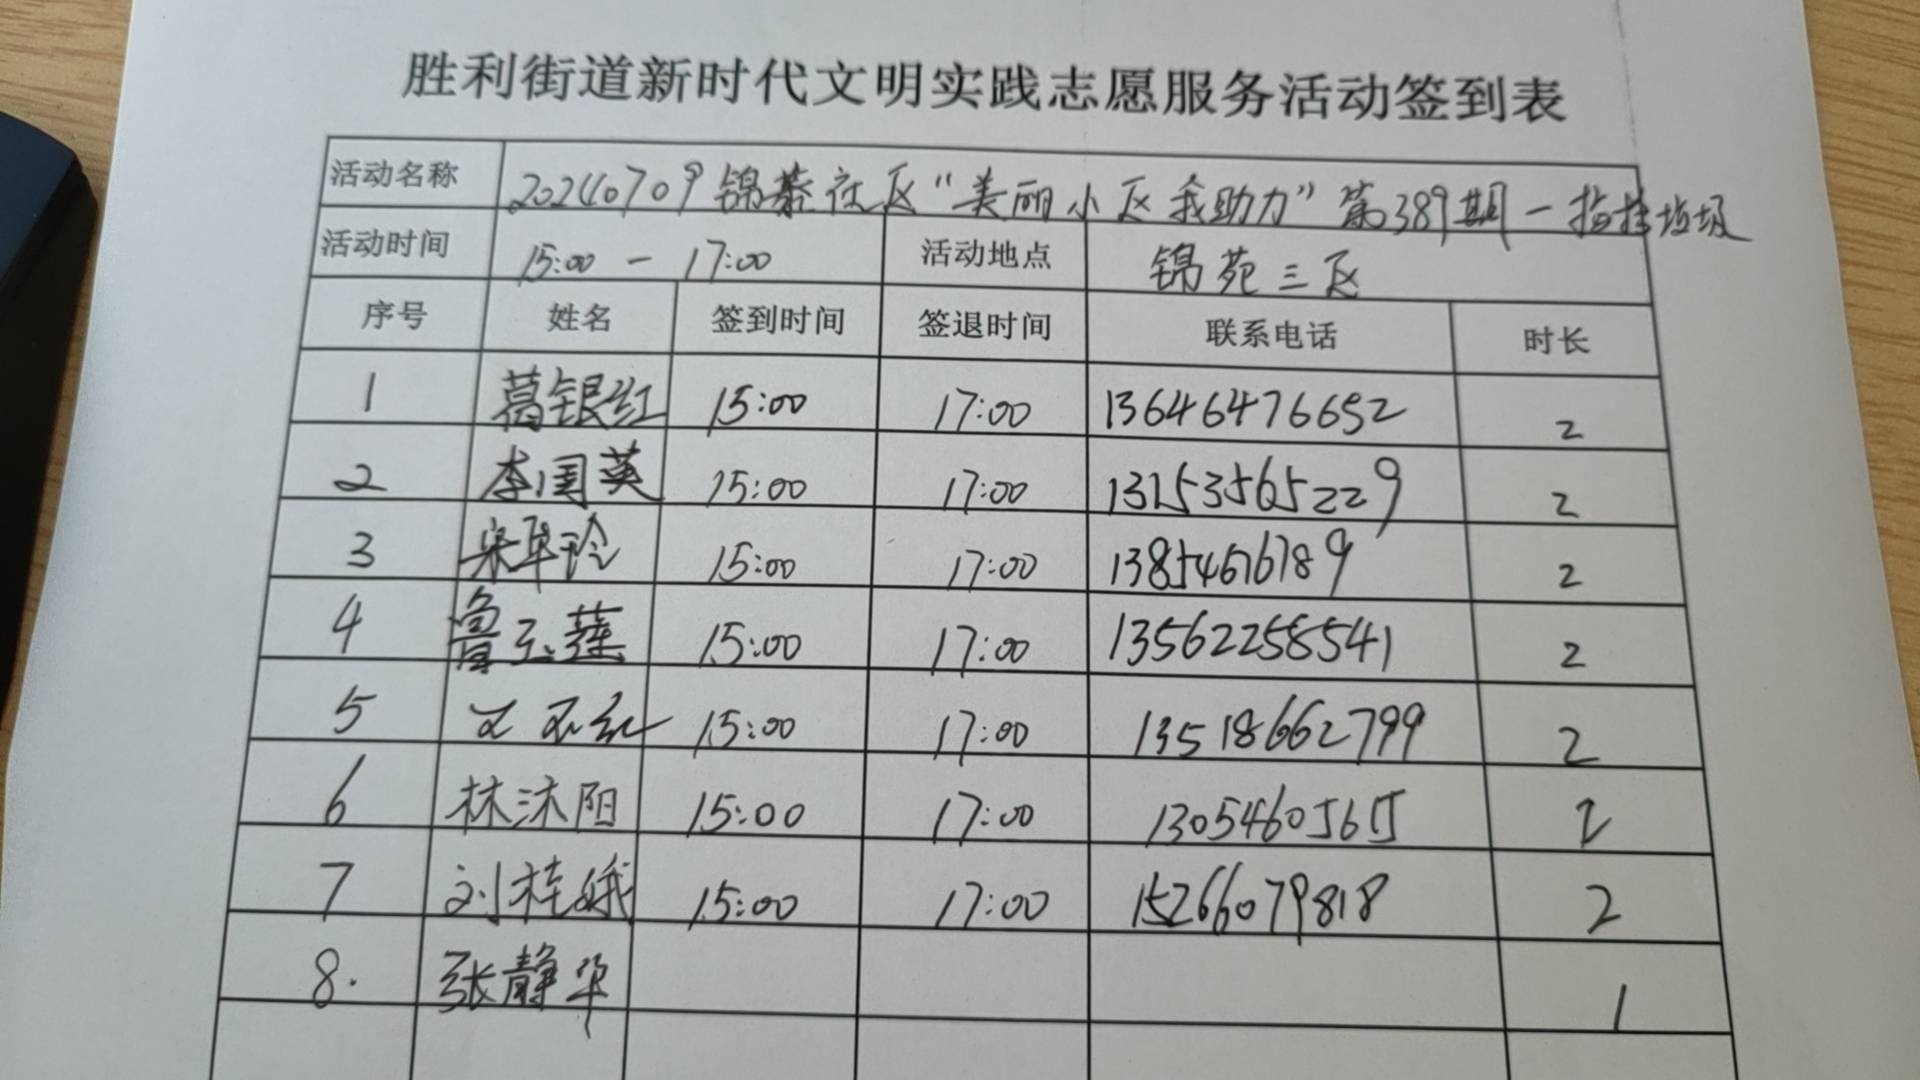 胜利街道新时代文明实践志愿服务活动签到表
活动名称 20240709锦苑社区“美丽小区我助力”第389期—捡拾垃圾
活动时间 15:00 - 17:00 活动地点 锦苑三区
序号 姓名 签到时间 签退时间 联系电话 时长
1 葛银红 15:00 17:00 13646476652 2
2 李国英 15:00 17:00 2
3 15:00 17:00 13854676789 2
4 鲁玉莲 15:00 17:00 13562258541 2
5 15:00 17:00 13518662799 2
6 林沐阳 15:00 17:00 13054605615 2
7 刘桂娥 15:00 17:00 15266079818 2
8. 张静华 1